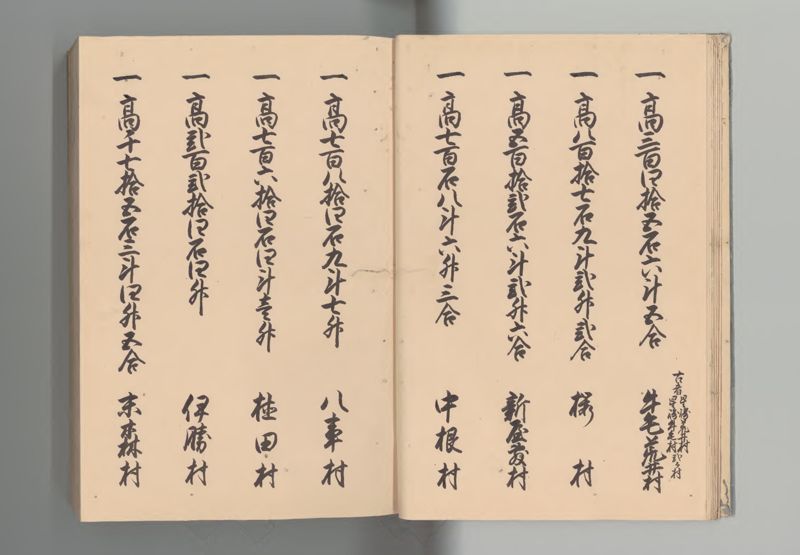 一高三百四拾五石六斗五合 牛毛荒井村
一高八百拾七石九斗弐升弐合 桜村
一高五百拾弐石六斗弐升六合 新屋敷村
一高七百石八斗六升三合 中根村
一高七百八拾四石九斗七升 八事村
一高七百六拾四石四斗壱升 植田村
一高弐百弐拾四石四升 伊勝村
一高千七拾五石三斗四升五合 末森村